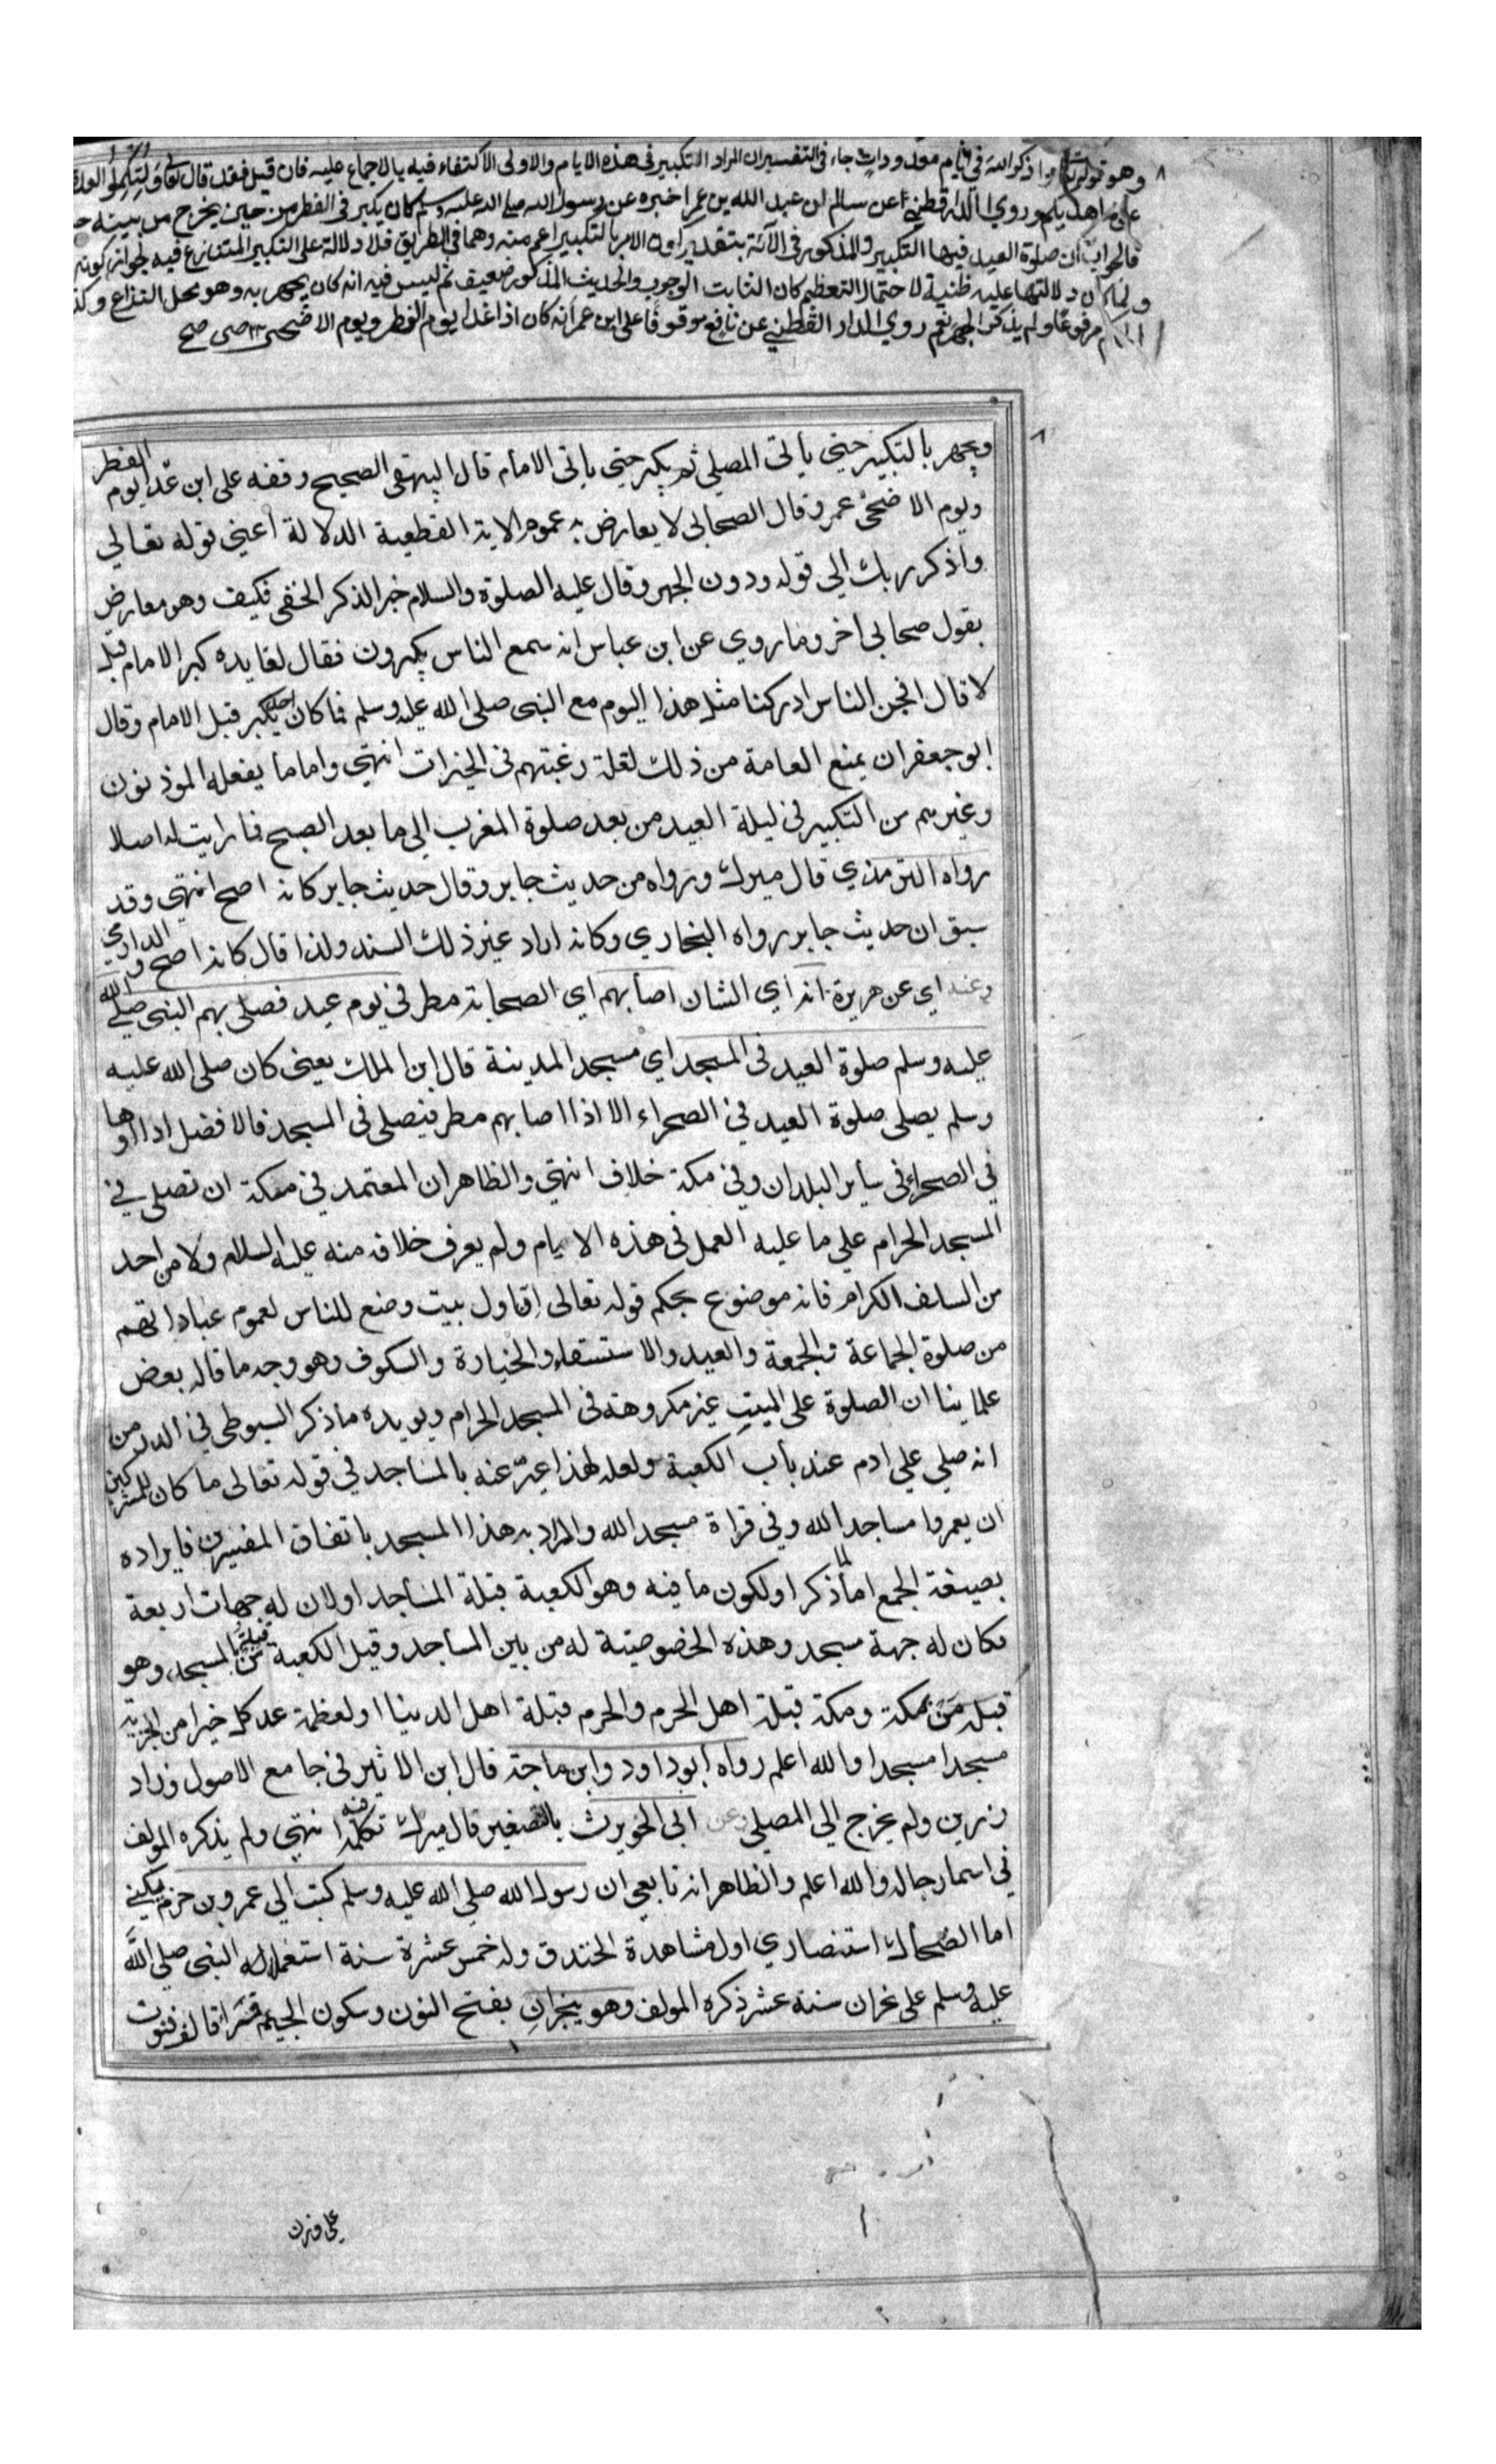 وهو قوله تعالى واذكروا الله في ايام معدودات جاء في التفسير ان المراد التكبير في هذه الايام والاولى الاكتفاء فيه بالاجماع عليه فان قيل فقد قال تعالى ولتكملوا العدة
على ما هداكم وروي الدارقطني عن سالم ان عبد الله بن عمر اخبره عن رسول الله صلى الله عليه وسلم كان يكبر في الفطر من حين يخرج من بيته
فالجواب ان صلوة العيد فيها التكبير والمذكور في الآية بتقدير كون الامر بالتكبير اعم منه وهما في الطريق فلا دلالة على التكبير المتنازع فيه لجواز كونه
ولما كان دلالتها عليه ظنية لاحتمال التعظيم كان الثابت الوجوب والحديث المذكور ضعيف ثم ليس فيه انه كان يجهر به وهو محل النزاع
مرفوعا ولم يذكر الجهر نعم روي الدارالقطني عن نافع موقوفا على ابن عمر انه كان اذا غدا يوم الفطر ويوم الاضحى صح
ويجهر بالتكبير حتى يأتى المصلي ثم يكبر حتى ياتى الامام قال البيهقي الصحيح وقفه على ابن عمر يوم الفطر
ويوم الاضحى عمر وقال الصحابى لا يعارض به عموم الاية القطعية الدلالة اعني قوله تعالي
واذكر ربك الي قوله ودون الجهر وقال عليه الصلوة والسلام خير الذكر الخفي فكيف وهو معارض
بقول صحابى اخر وما روي عن ابن عباس انه سمع الناس يكبرون فقال لقايده كبر الامام قيل
لا قال افجن الناس ادركنا مثل هذا اليوم مع النبى صلى الله عليه وسلم فما كان احد يكبر قبل الامام وقال
ابو جعفر ان يمنع العامة من ذلك لقلة رغبتهم في الخيرات انتهي واما ما يفعله الموذنون
وغيرهم من التكبير في ليلة العيد من بعد صلوة المغرب الي ما بعد الصبح فما رايت له اصلا
رواه الترمذي قال ميرك ورواه من حديث جابر وقال حديث جابر كانه اصح انتهى وقد
سبق ان حديث جابر رواه البخاري وكانه اراد غير ذلك السند ولذا قال كانه اصح والدارمي
وعنه اي عن هريرة انه اي الشان اصابهم اي الصحابة مطر في يوم عيد فصلى بهم النبى صلى الله
عليه وسلم صلوة العيد في المسجد اي مسجد المدينة قال ابن الملك يعني كان صلى الله عليه
وسلم يصلى صلوة العيد في الصحراء الا اذا اصابهم مطر فيصلى في المسجد فالافضل اداؤها
في الصحراء في سأير البلدان وفي مكة خلاف انتهي والظاهر ان المعتمد في مكة ان تصلى في
المسجد الحرام على ما عليه العمل في هذه الايام ولم يعرف خلافه منه عليه السلام ولا من احد
من السلف الكرام فانه موضوع بحكم قوله تعالى ان اول بيت وضع للناس لعموم عباداتهم
من صلوة الجماعة والجمعة والعيد والاستسقاء والخيازة والسكوف وهو وجه ما قاله بعض
علماينا ان الصلوة على الميت غير مكروهة في المسجد الحرام ويويده ما ذكر السيوطي في الدر من
انه صلي علي ادم عند بأب الكعبة ولعله لهذا عبر عنه بالمساجد في قوله تعالى ما كان للمشركين
ان يعمروا مساجد الله وفي قراة مسجد الله والمراد به هذا المسجد باتفاق المفسرين فايراده
بصيغة الجمع اما لما ذكر او لكون ما فيه وهو الكعبة قبلة المسأجد او لان له جهات اربعة
فكان له جهة مسجد وهذه الخصوصية له من بين المساجد وقيل الكعبة قبلة من بالمسجد وهو
قبلة من بمكة ومكة قبلة اهل الحرم والحرم قبلة اهل الدينا او لعظمة عد كل خيرا من الجزية
مسجدا مسجدا والله اعلم رواه ابو داود وابن ماجة قال ابن الاثير في جامع الاصول وزاد
رزين ولم يخرج الي المصلي وعن ابي الحويرث بالتصغير قال ميرك تكلم فيه انتهي ولم يذكره المولف
في اسما رجاله والله اعلم والظاهر انه تابعي ان رسول الله صلى الله عليه وسلم كتب الي عمرو بن حزم يكني
اما الضحاك استنصاري اول مشاهدة الخندق وله خمس عشرة سنة استعمله النبى صلى الله
عليه وسلم على نجران سنة عشر ذكره المولف وهو بنجران بفتح النون وسكون الجيم فراء فالف فنون
على وزن